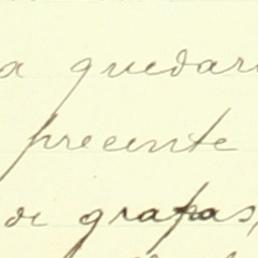 a quedar
preente
de grapas,